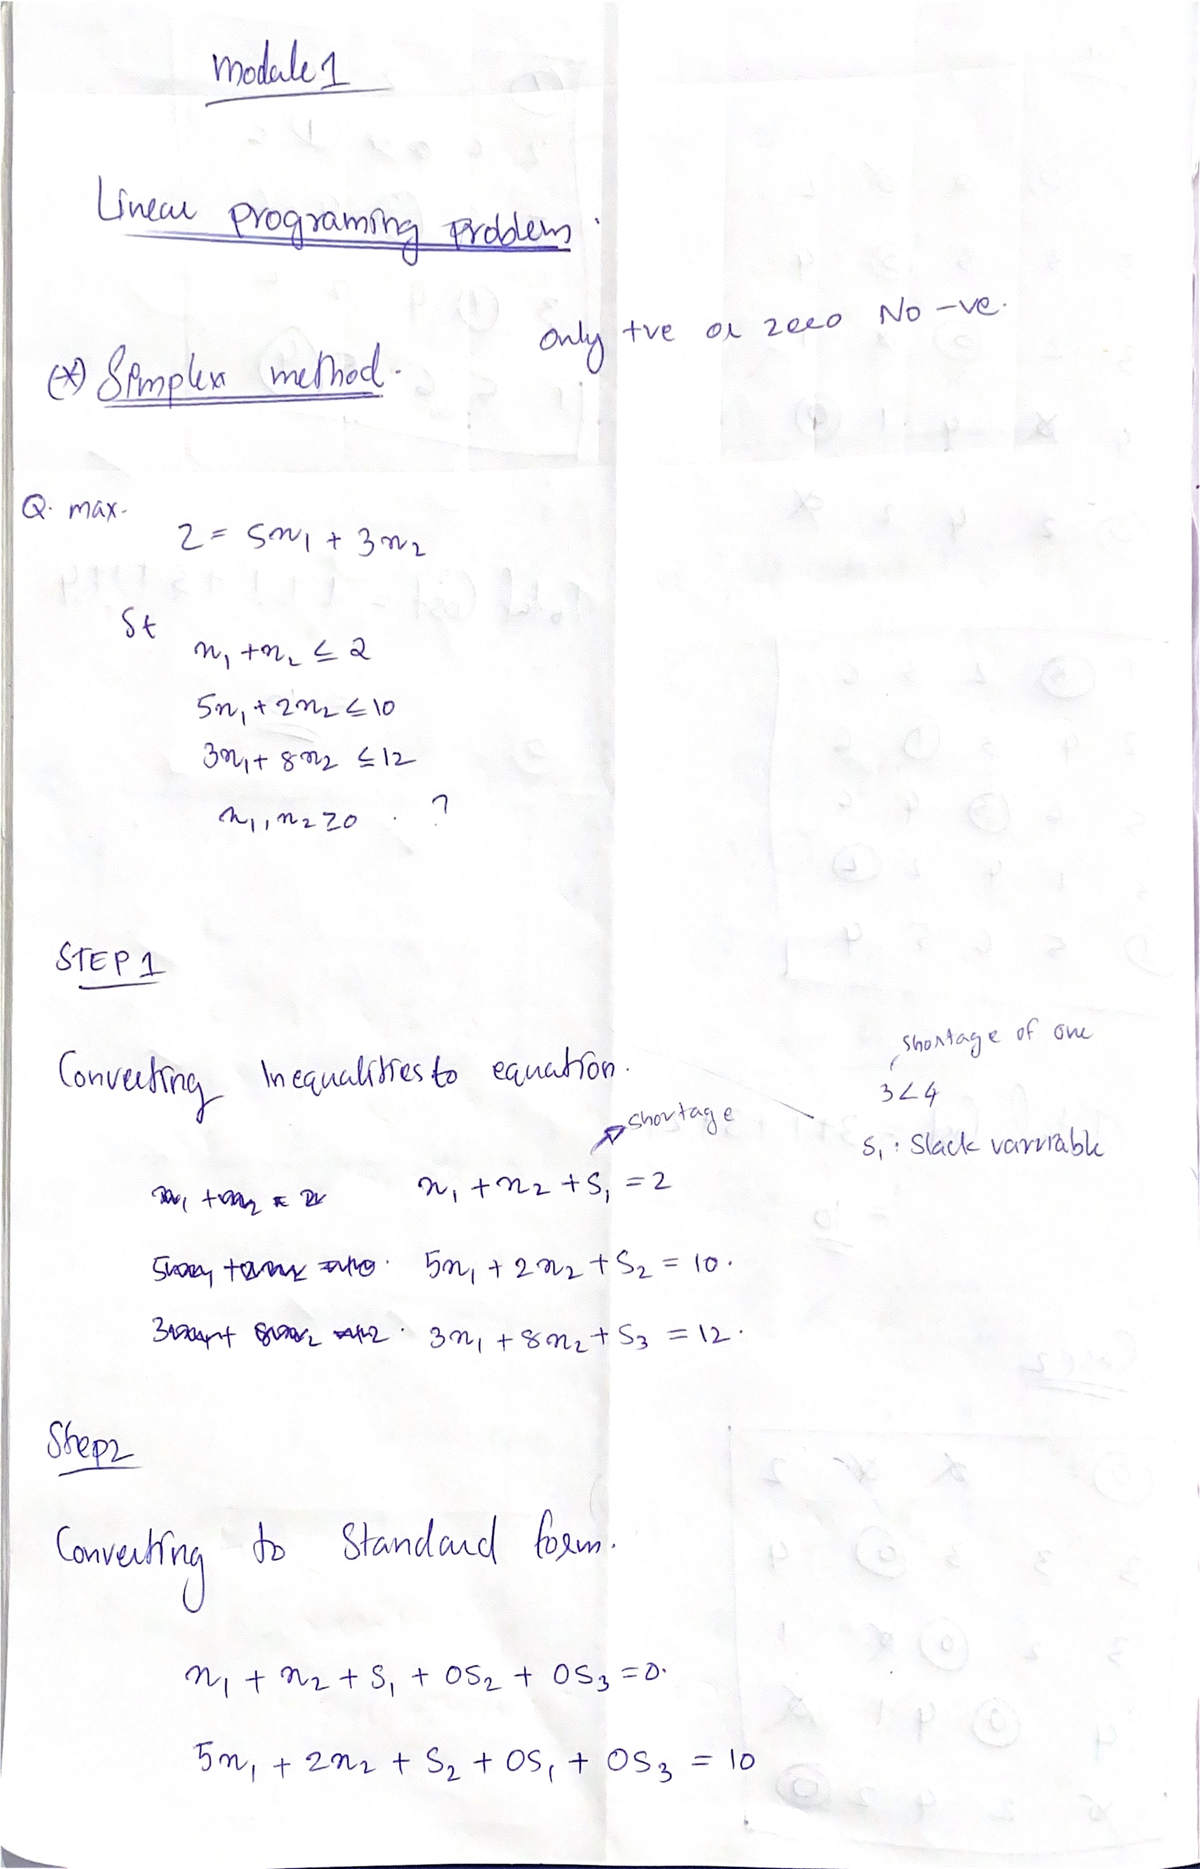 Module 1
Linear programing problem.
only +ve or zero No -ve.
(*) Simplex method.
Q. max.
Z = 5x₁ + 3x₂
St
x₁ + x₂ ≤ 2
5x₁ + 2x₂ ≤ 10
3x₁ + 8x₂ ≤ 12
x₁, x₂ ≥ 0 . ?
STEP 1
Converting Inequalities to equation.
shortage of one
3 < 4
shortage
S₁ : Slack variable
x₁ + x₂ + S₁ = 2
5x₁ + 2x₂ + S₂ = 10.
3x₁ + 8x₂ + S₃ = 12.
Step 2
Converting to Standard form.
x₁ + x₂ + S₁ + 0S₂ + 0S₃ = 0.
5x₁ + 2x₂ + S₂ + 0S₁ + 0S₃ = 10